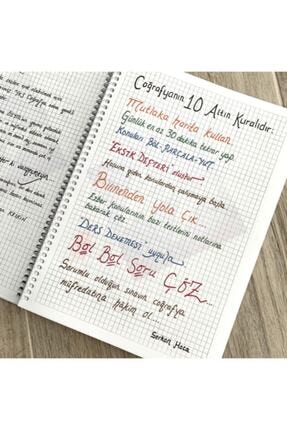 Coğrafyanın 10 Altın Kuralıdır:
Mutlaka harita kullan.
Günlük en az 30 dakika tekrar yap.
Konuları BÖL-PARÇALA-YUT
"EKSİK DEFTERİ" oluştur
Hoşuna giden konulardan çalışmaya başla
Bilinenden yola çık...
Ezber konularının bazı testlerini notlarına
bakarak çöz
"DERS DENEMESİ" uygula
Bol Bol Soru ÇÖZ...
Sorumlu olduğun sınavın coğrafya
müfredatına hakim ol...
Serkan Hoca